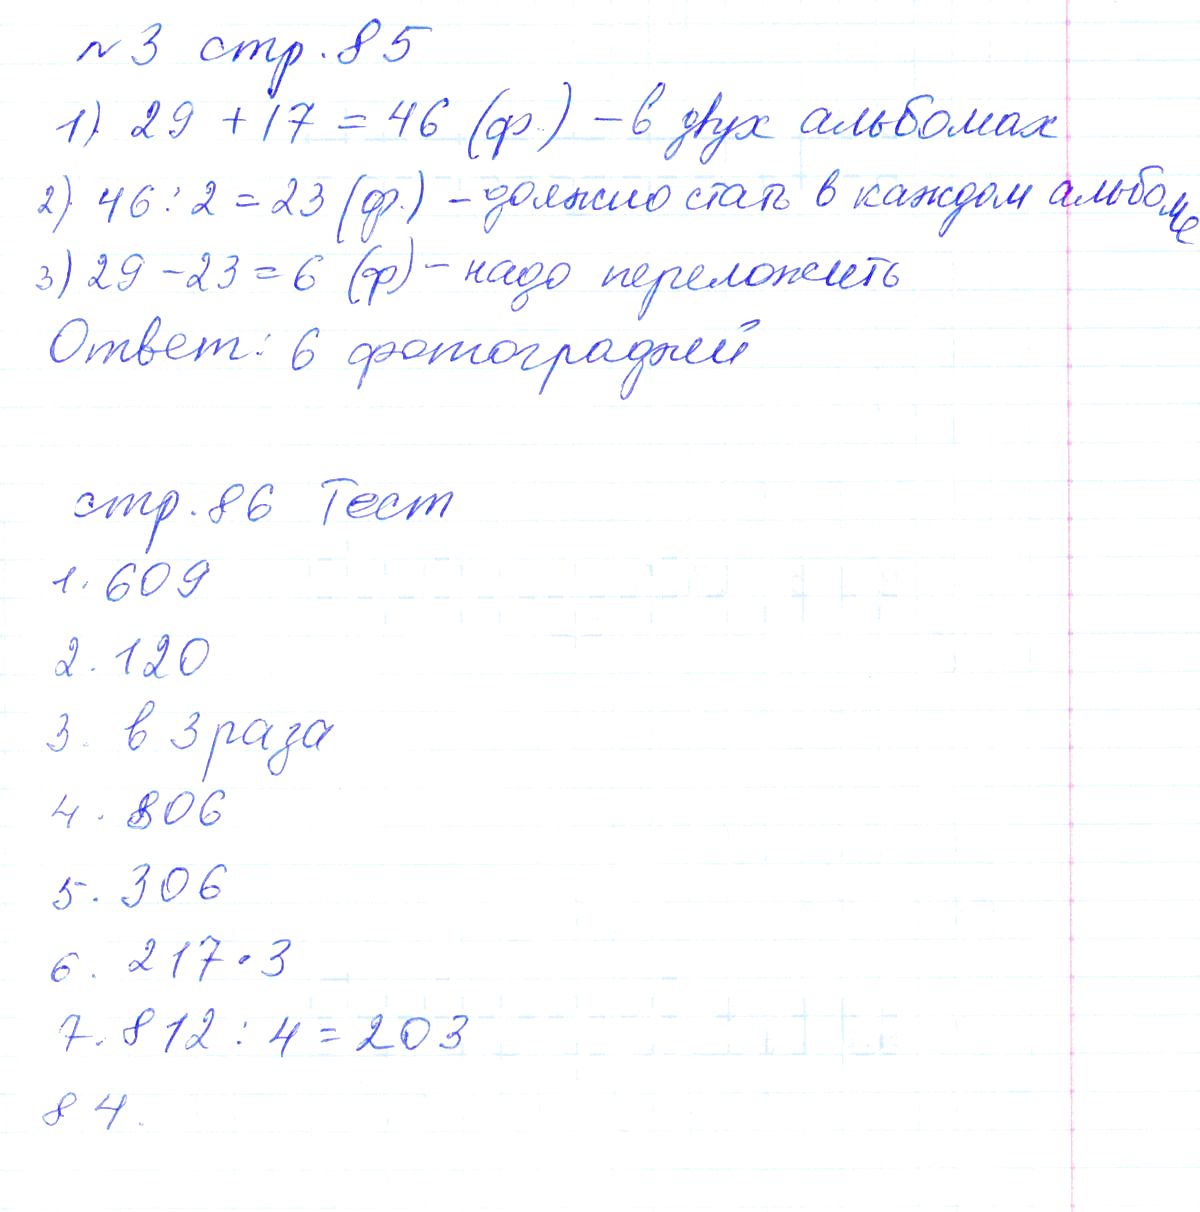 №3 стр. 85
1) 29 + 17 = 46 (ф.) – в двух альбомах
2) 46 : 2 = 23 (ф.) – должно стать в каждом альбоме
3) 29 – 23 = 6 (ф) – надо переложить
Ответ: 6 фотографий
стр. 86 Тест
1. 609
2. 120
3. в 3 раза
4. 806
5. 306
6. 217 · 3
7. 812 : 4 = 203
8 4.